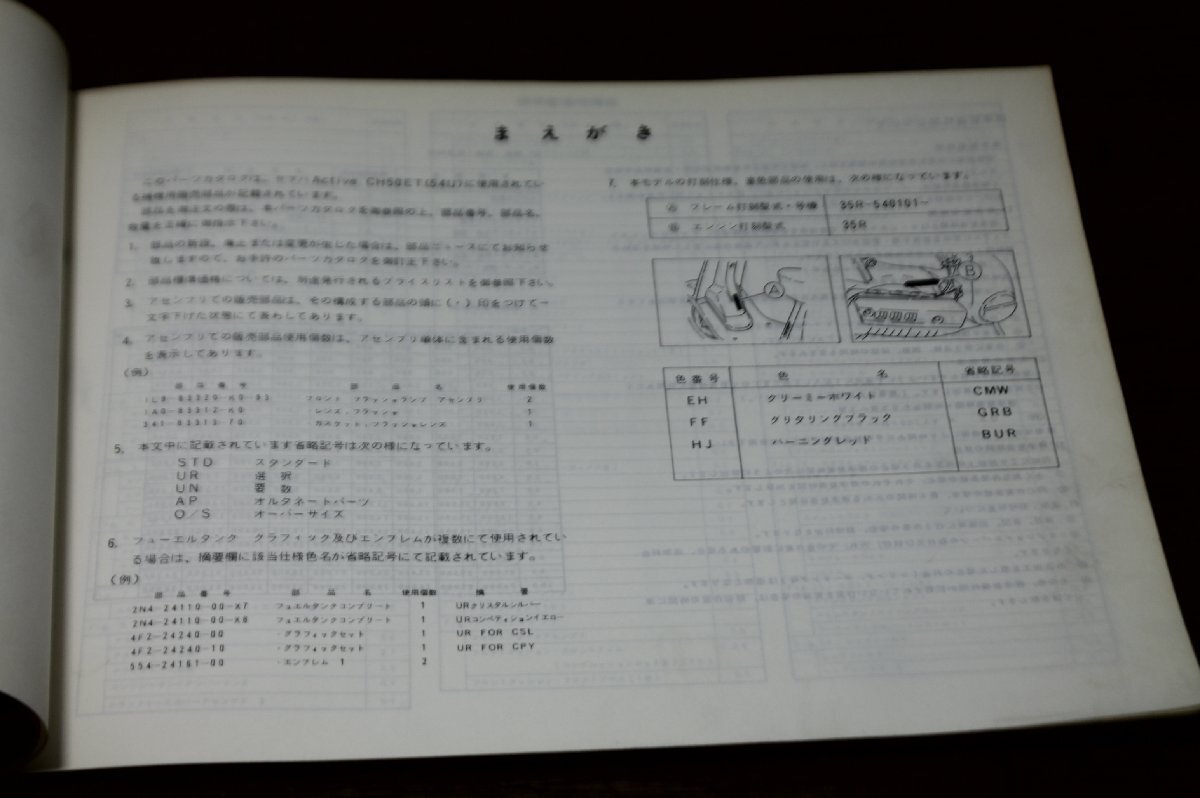 まえがき
このパーツカタログは、ヤマハ Active CH50ET(54U)に使用されてい
る補修用販売部品が記載されています。
部品を御注文の際は、本パーツカタログを御参照の上、部品番号、部品名、
数量を正確に御指示下さい。
1. 部品の新設、廃止または変更が生じた場合は、部品ニュースにてお知らせ
致しますので、お手許のパーツカタログを御訂正下さい。
2. 部品標準価格については、別途発行されるプライスリストを御参照下さい。
3. アセンブリでの販売部品は、その構成する部品の頭に(・)印をつけて一
文字下げた状態にて表わしてあります。
4. アセンブリでの販売部品使用個数は、アセンブリ単体に含まれる使用個数
を表示してあります。
(例)
部品番号 部品名 使用個数
1L9-83320-K0-93 フロント フラッシャランプ アセンブリ 2
1A0-83312-K0 ・レンズ,フラッシャ 1
341-83313-70 ・ガスケット,フラッシャレンズ 1
5. 本文中に記載されています省略記号は次の様になっています。
STD スタンダード
UR 選択
UN 要数
AP オルタネートパーツ
O/S オーバーサイズ
6. フューエルタンク グラフィック及びエンブレムが複数にて使用されてい
る場合は、摘要欄に該当仕様色名が省略記号にて記載されています。
(例)
部品番号 部品名 使用個数 摘要
2N4-24110-00-X7 フュエルタンクコンプリート 1 URクリスタルシルバー
2N4-24110-00-X6 フュエルタンクコンプリート 1 URコンペティションイエロー
4F2-24240-00 ・グラフィックセット 1 UR FOR CSL
4F2-24240-10 ・グラフィックセット 1 UR FOR CPY
554-24161-00 ・エンブレム 1 2
7. 本モデルの打刻仕様、着色部品の使用は、次の様になっています。
Ⓐ フレーム打刻型式・号機 35R-540101~
Ⓑ エンジン打刻型式 35R
Ⓐ
Ⓑ
色番号 色名 省略記号
EH クリーミーホワイト CMW
FF グリタリングブラック GRB
HJ バーニングレッド BUR